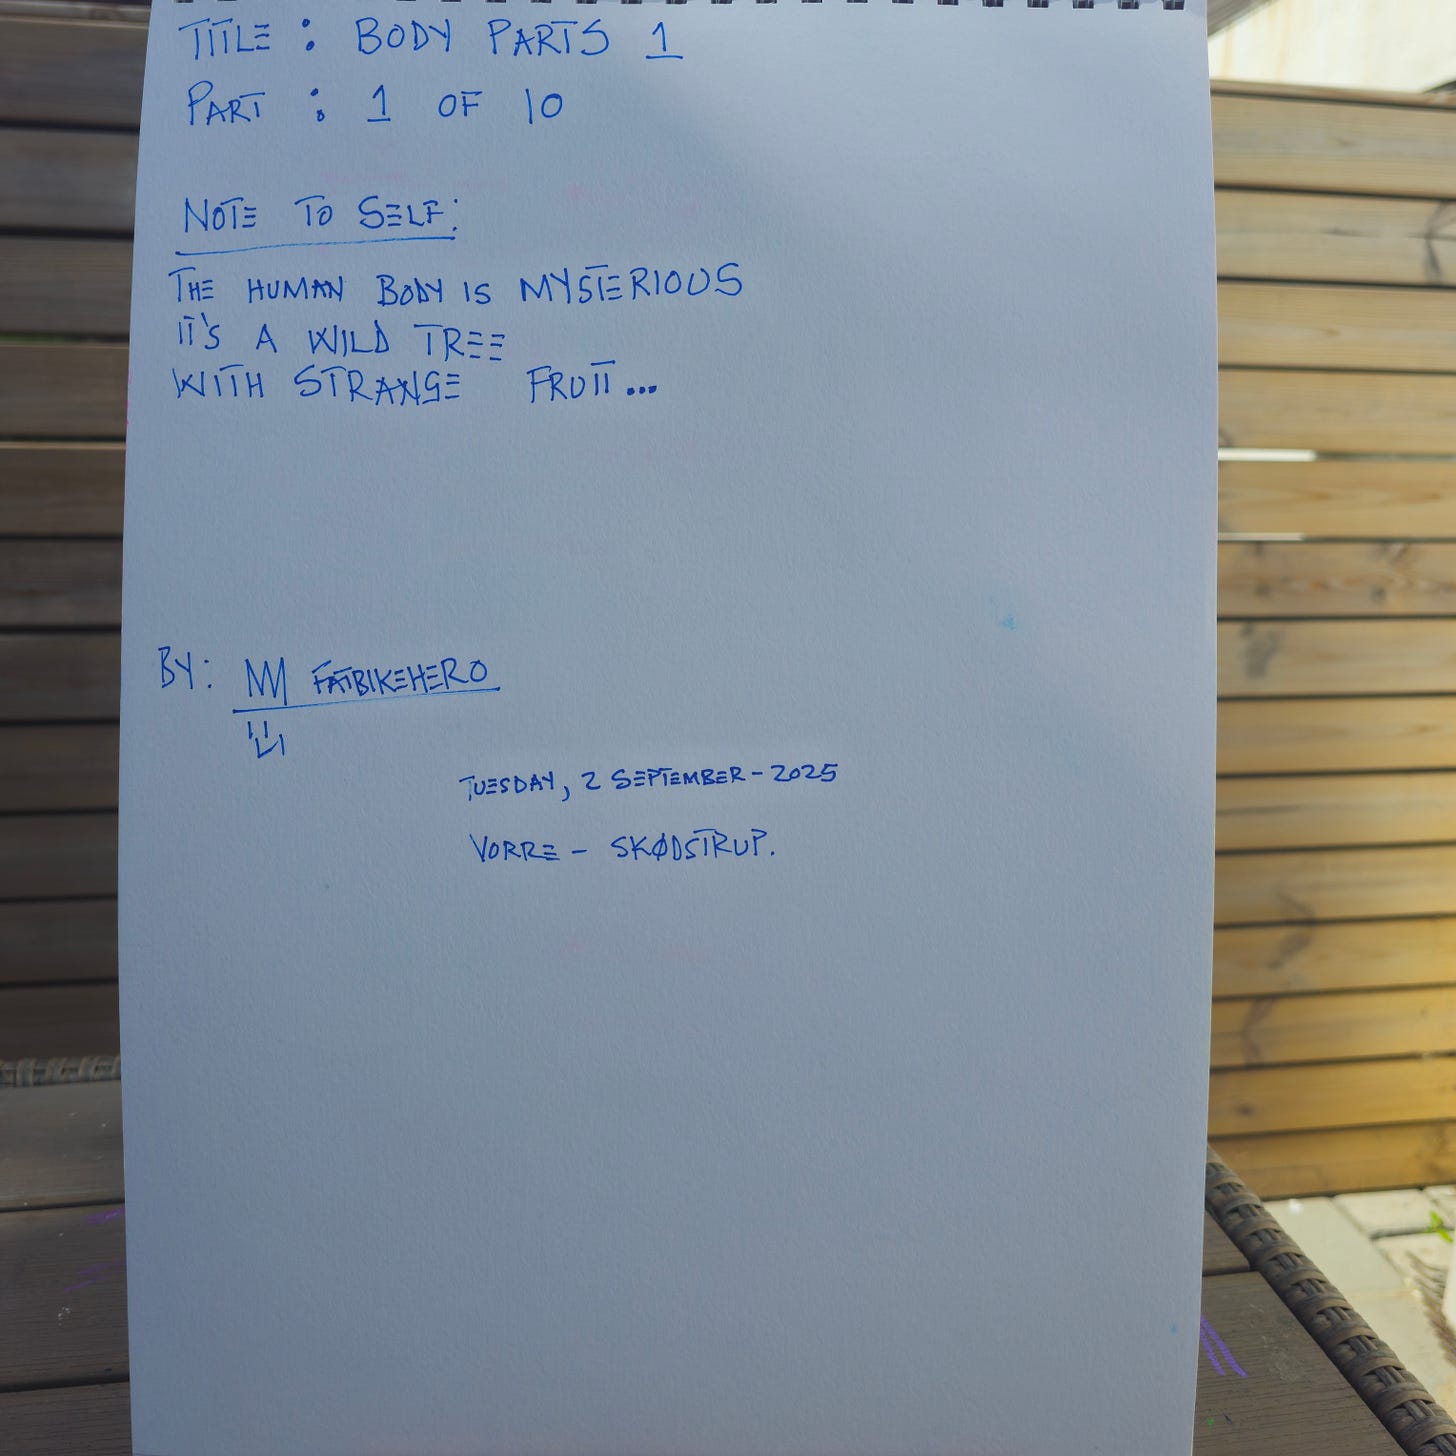 TITLE : BODY PARTS 1
PART : 1 OF 10
NOTE TO SELF:
THE HUMAN BODY IS MYSTERIOUS
IT'S A WILD TREE
WITH STRANGE FRUIT...
BY: FATBIKEHERO
TUESDAY, 2 SEPTEMBER - 2025
VORRE - SKØDSTRUP.